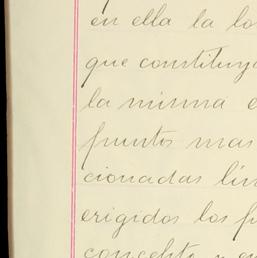 en ella la lo
que constituy
la misma e
puntos mas
cionadas lin
erigidos los p
concepto y en